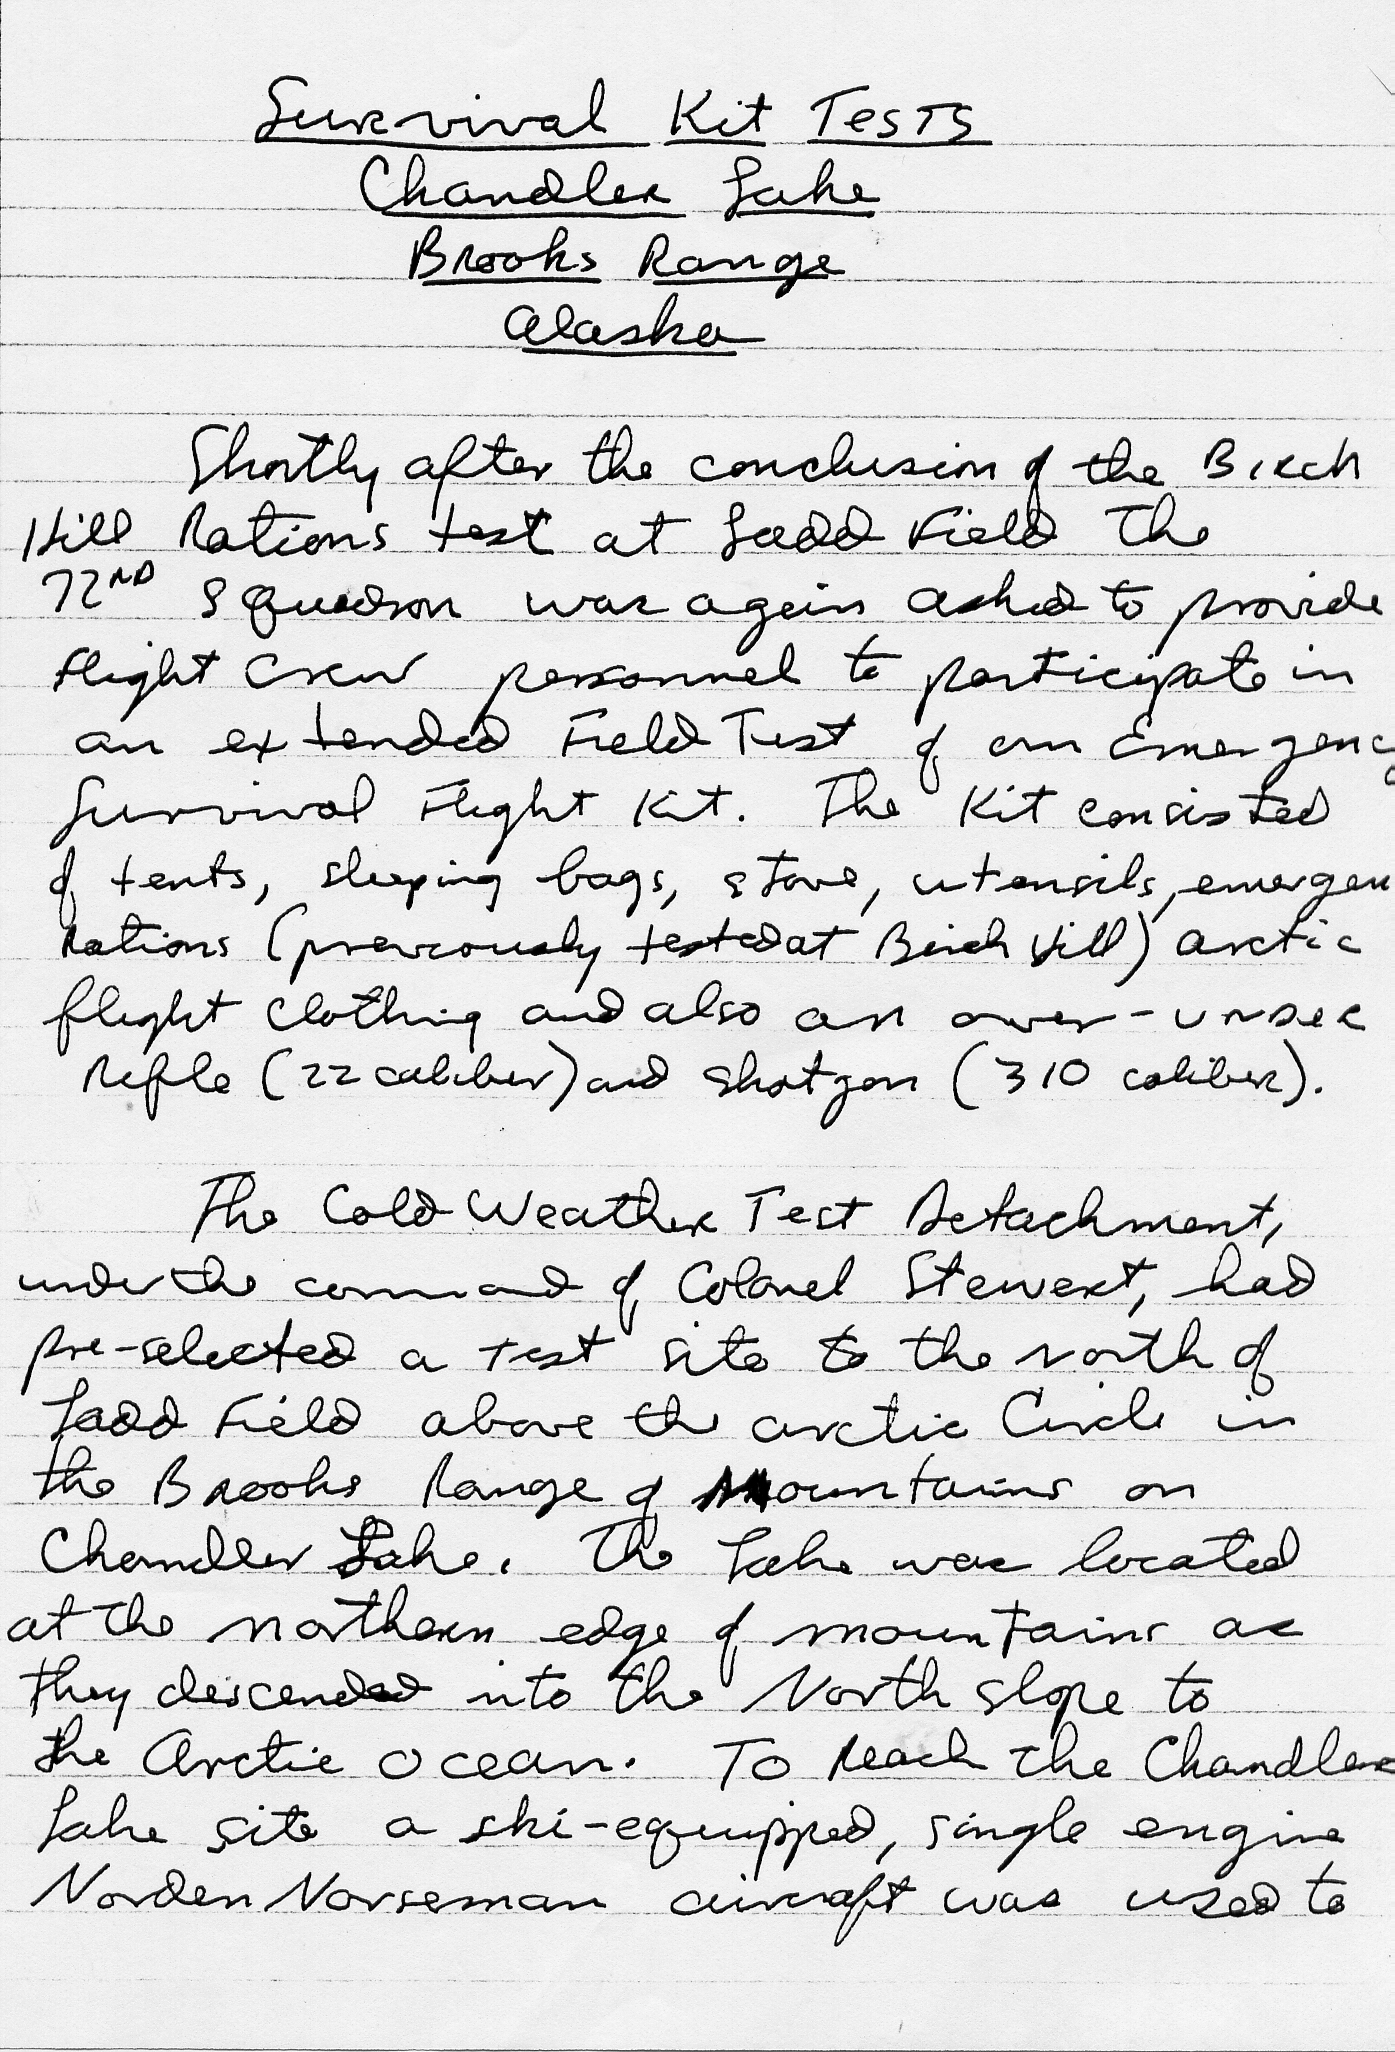 Survival Kit Tests
Chandler Lake
Brooks Range
Alaska
Shortly after the conclusion of the Birch
Hill Rations test at Ladd Field The
72ND Squadron was again asked to provide
flight crew personnel to participate in
an extended Field Test of an Emergenc
Survival Flight Kit. The Kit consisted
of tents, sleeping bags, stove, utensils, emergen
Rations (previously tested at Birch Hill) arctic
flight clothing and also an over-under
Rifle (22 caliber) and shotgun (310 caliber).
The Cold Weather Test Detachment,
under the command of Colonel Stewert, had
pre-selected a test site to the north of
Ladd Field above the arctic Circle in
the Brooks Range of Mountains on
Chandler Lake. The Lake was located
at the northern edge of mountains as
they descended into the North slope to
the Arctic Ocean. To Reach the Chandler
Lake site a ski-equipped, single engine
Norden Norseman aircraft was used to